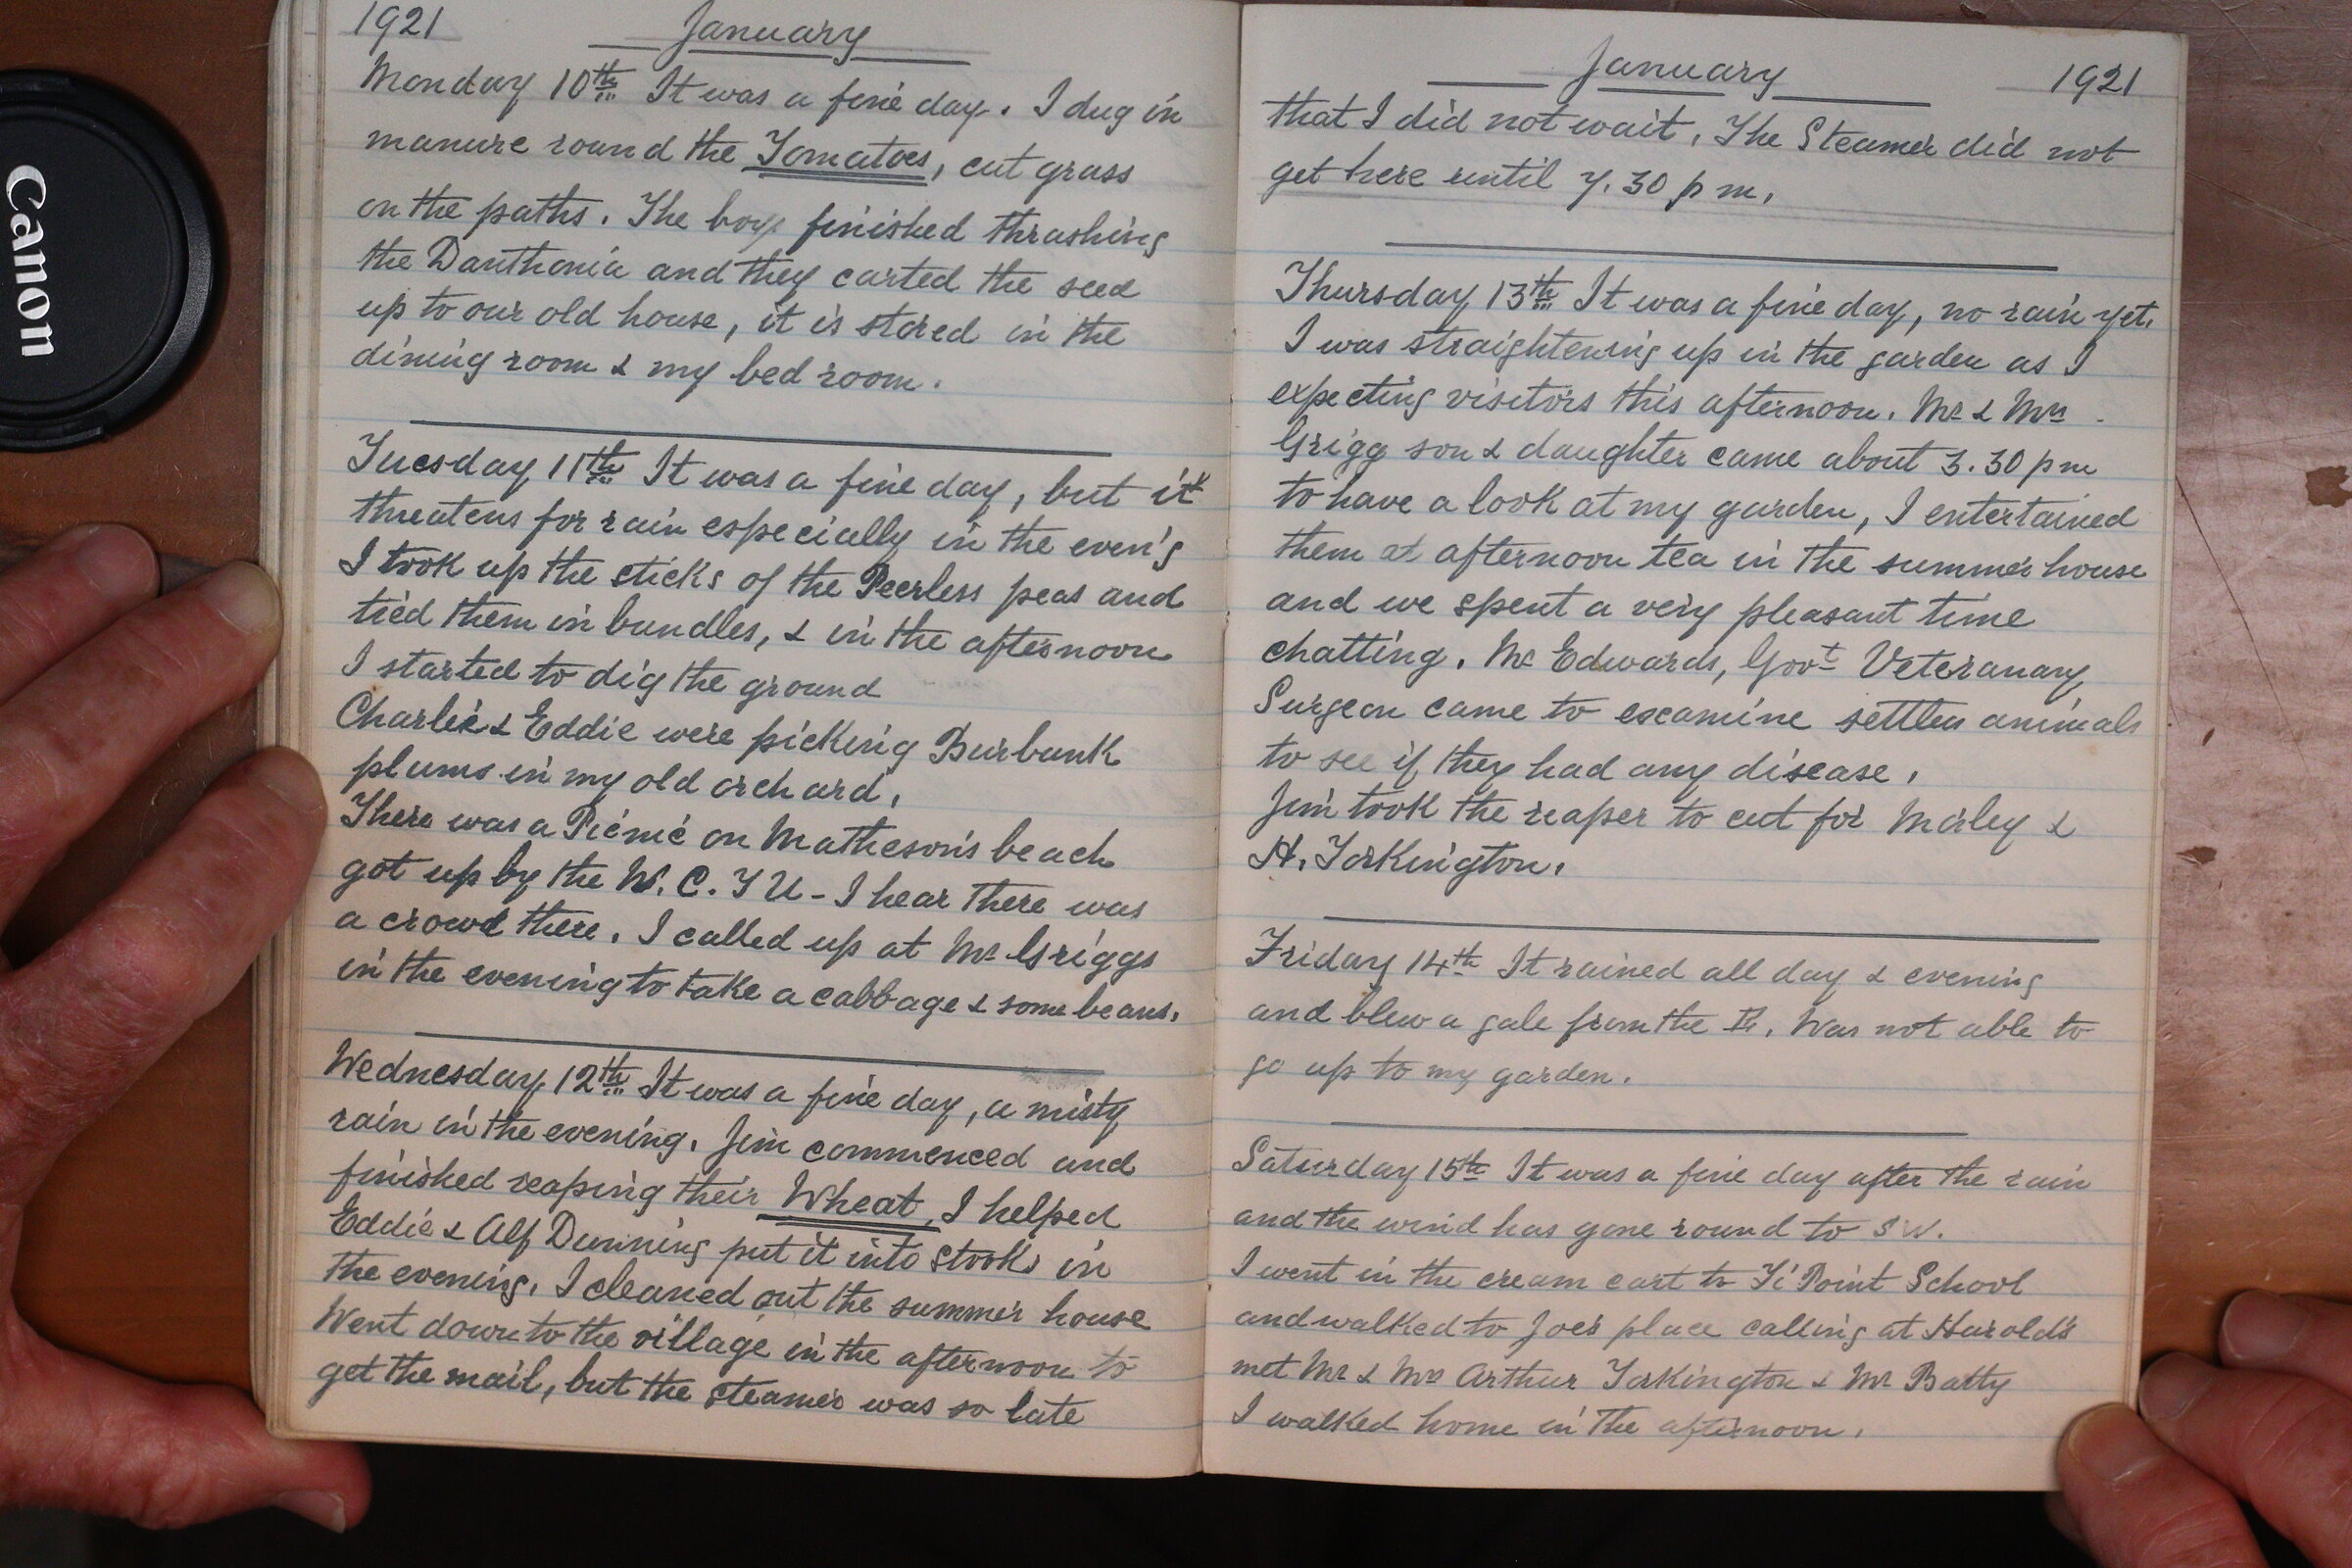 Canon
1921 January
Monday 10th It was a fine day. I dug in
manure round the Tomatoes, cut grass
on the paths. The boys finished thrashing
the Danthonia and they carted the seed
up to our old house, it is stored in the
dining room & my bed room.
Tuesday 11th It was a fine day, but it
threatens for rain especially in the even'g
I took up the sticks of the Peerless peas and
tied them in bundles, & in the afternoon
I started to dig the ground
Charlie & Eddie were picking Burbank
plums in my old orchard,
There was a Picnic on Matheson's beach
got up by the W. C. T U - I hear there was
a crowd there. I called up at Mr Griggs
in the evening to take a cabbage & some beans.
Wednesday 12th It was a fine day, a misty
rain in the evening. Jim commenced and
finished reaping their Wheat, I helped
Eddie & Alf Dunning put it into stooks in
the evening. I cleaned out the summer house
Went down to the village in the afternoon to
get the mail, but the steamer was so late
January 1921
that I did not wait. The Steamer did not
get here until 7.30 p m.
Thursday 13th It was a fine day, no rain yet.
I was straightening up in the garden as I
expecting visitors this afternoon. Mr & Mrs
Grigg son & daughter came about 3.30 p m
to have a look at my garden, I entertained
them at afternoon tea in the summer house
and we spent a very pleasant time
chatting. Mr Edwards, Govt Veteranary
Surgeon came to examine settlers animals
to see if they had any disease.
Jim took the reaper to cut for Morley &
H. Torkington.
Friday 14th It rained all day & evening
and blew a gale from the E. Was not able to
go up to my garden.
Saturday 15th It was a fine day after the rain
and the wind has gone round to S W.
I went in the cream cart to Ti Point School
and walked to Joe's place calling at Harold's
met Mr & Mrs Arthur Torkington & Mr Batty
I walked home in the afternoon.